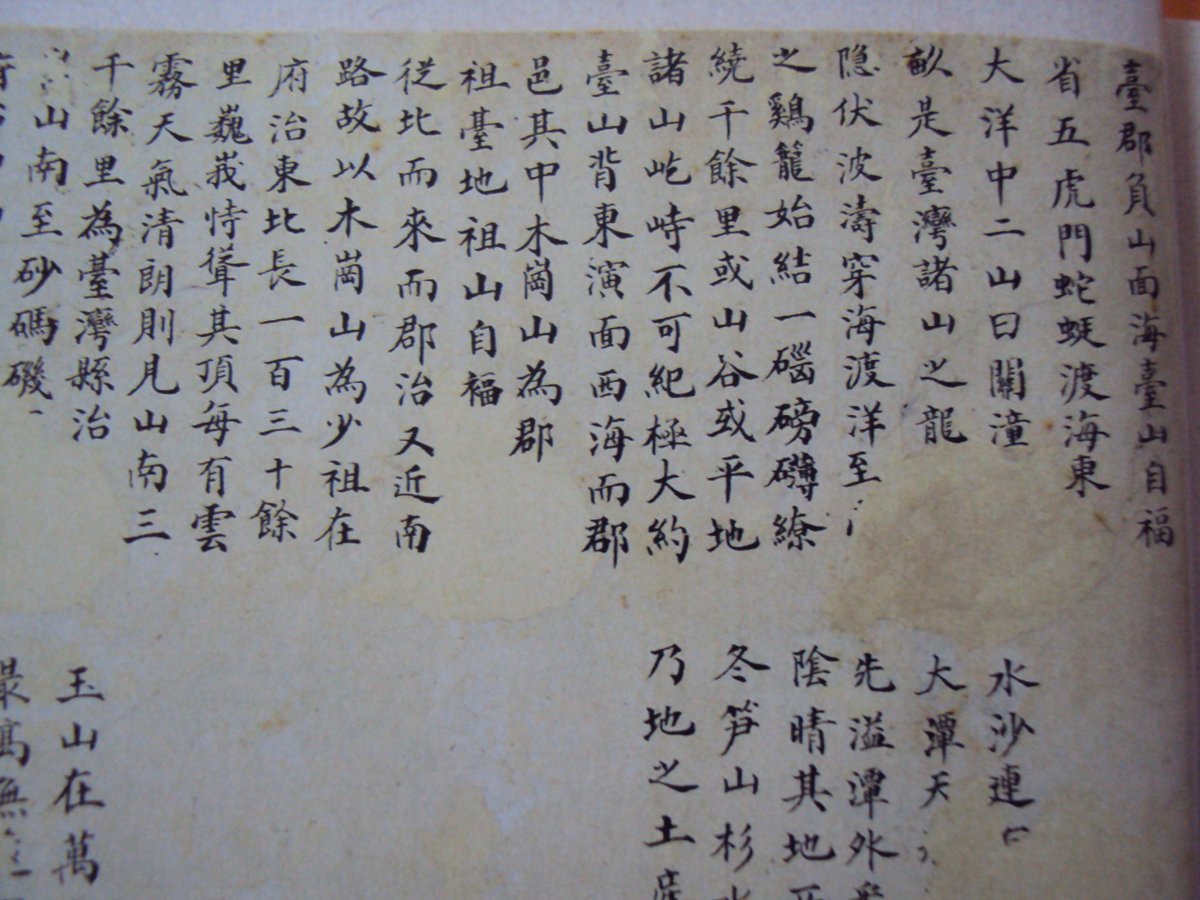 臺郡負山面海臺山自福
省五虎門蛇蜒渡海東
大洋中二山曰關潼
畝是臺灣諸山之龍
隐伏波濤穿海渡洋至
之鷄籠始結一磘磅礴繚
繞千餘里或山谷或平地
諸山屹峙不可紀極大約
臺山背東演面西海而郡
邑其中木崗山為郡
祖臺地祖山自福
従北而來而郡治又近南
路故以木崗山為少祖在
府治東北長一百三十餘
里巍峩恃聳其頂每有雲
霧天氣清朗則見山南三
千餘里為臺灣縣治
山南至砂碼磯
水沙連
大潭天
先溢潭外
陰晴其地
冬笋山杉
乃地之土産
玉山在萬
最高無